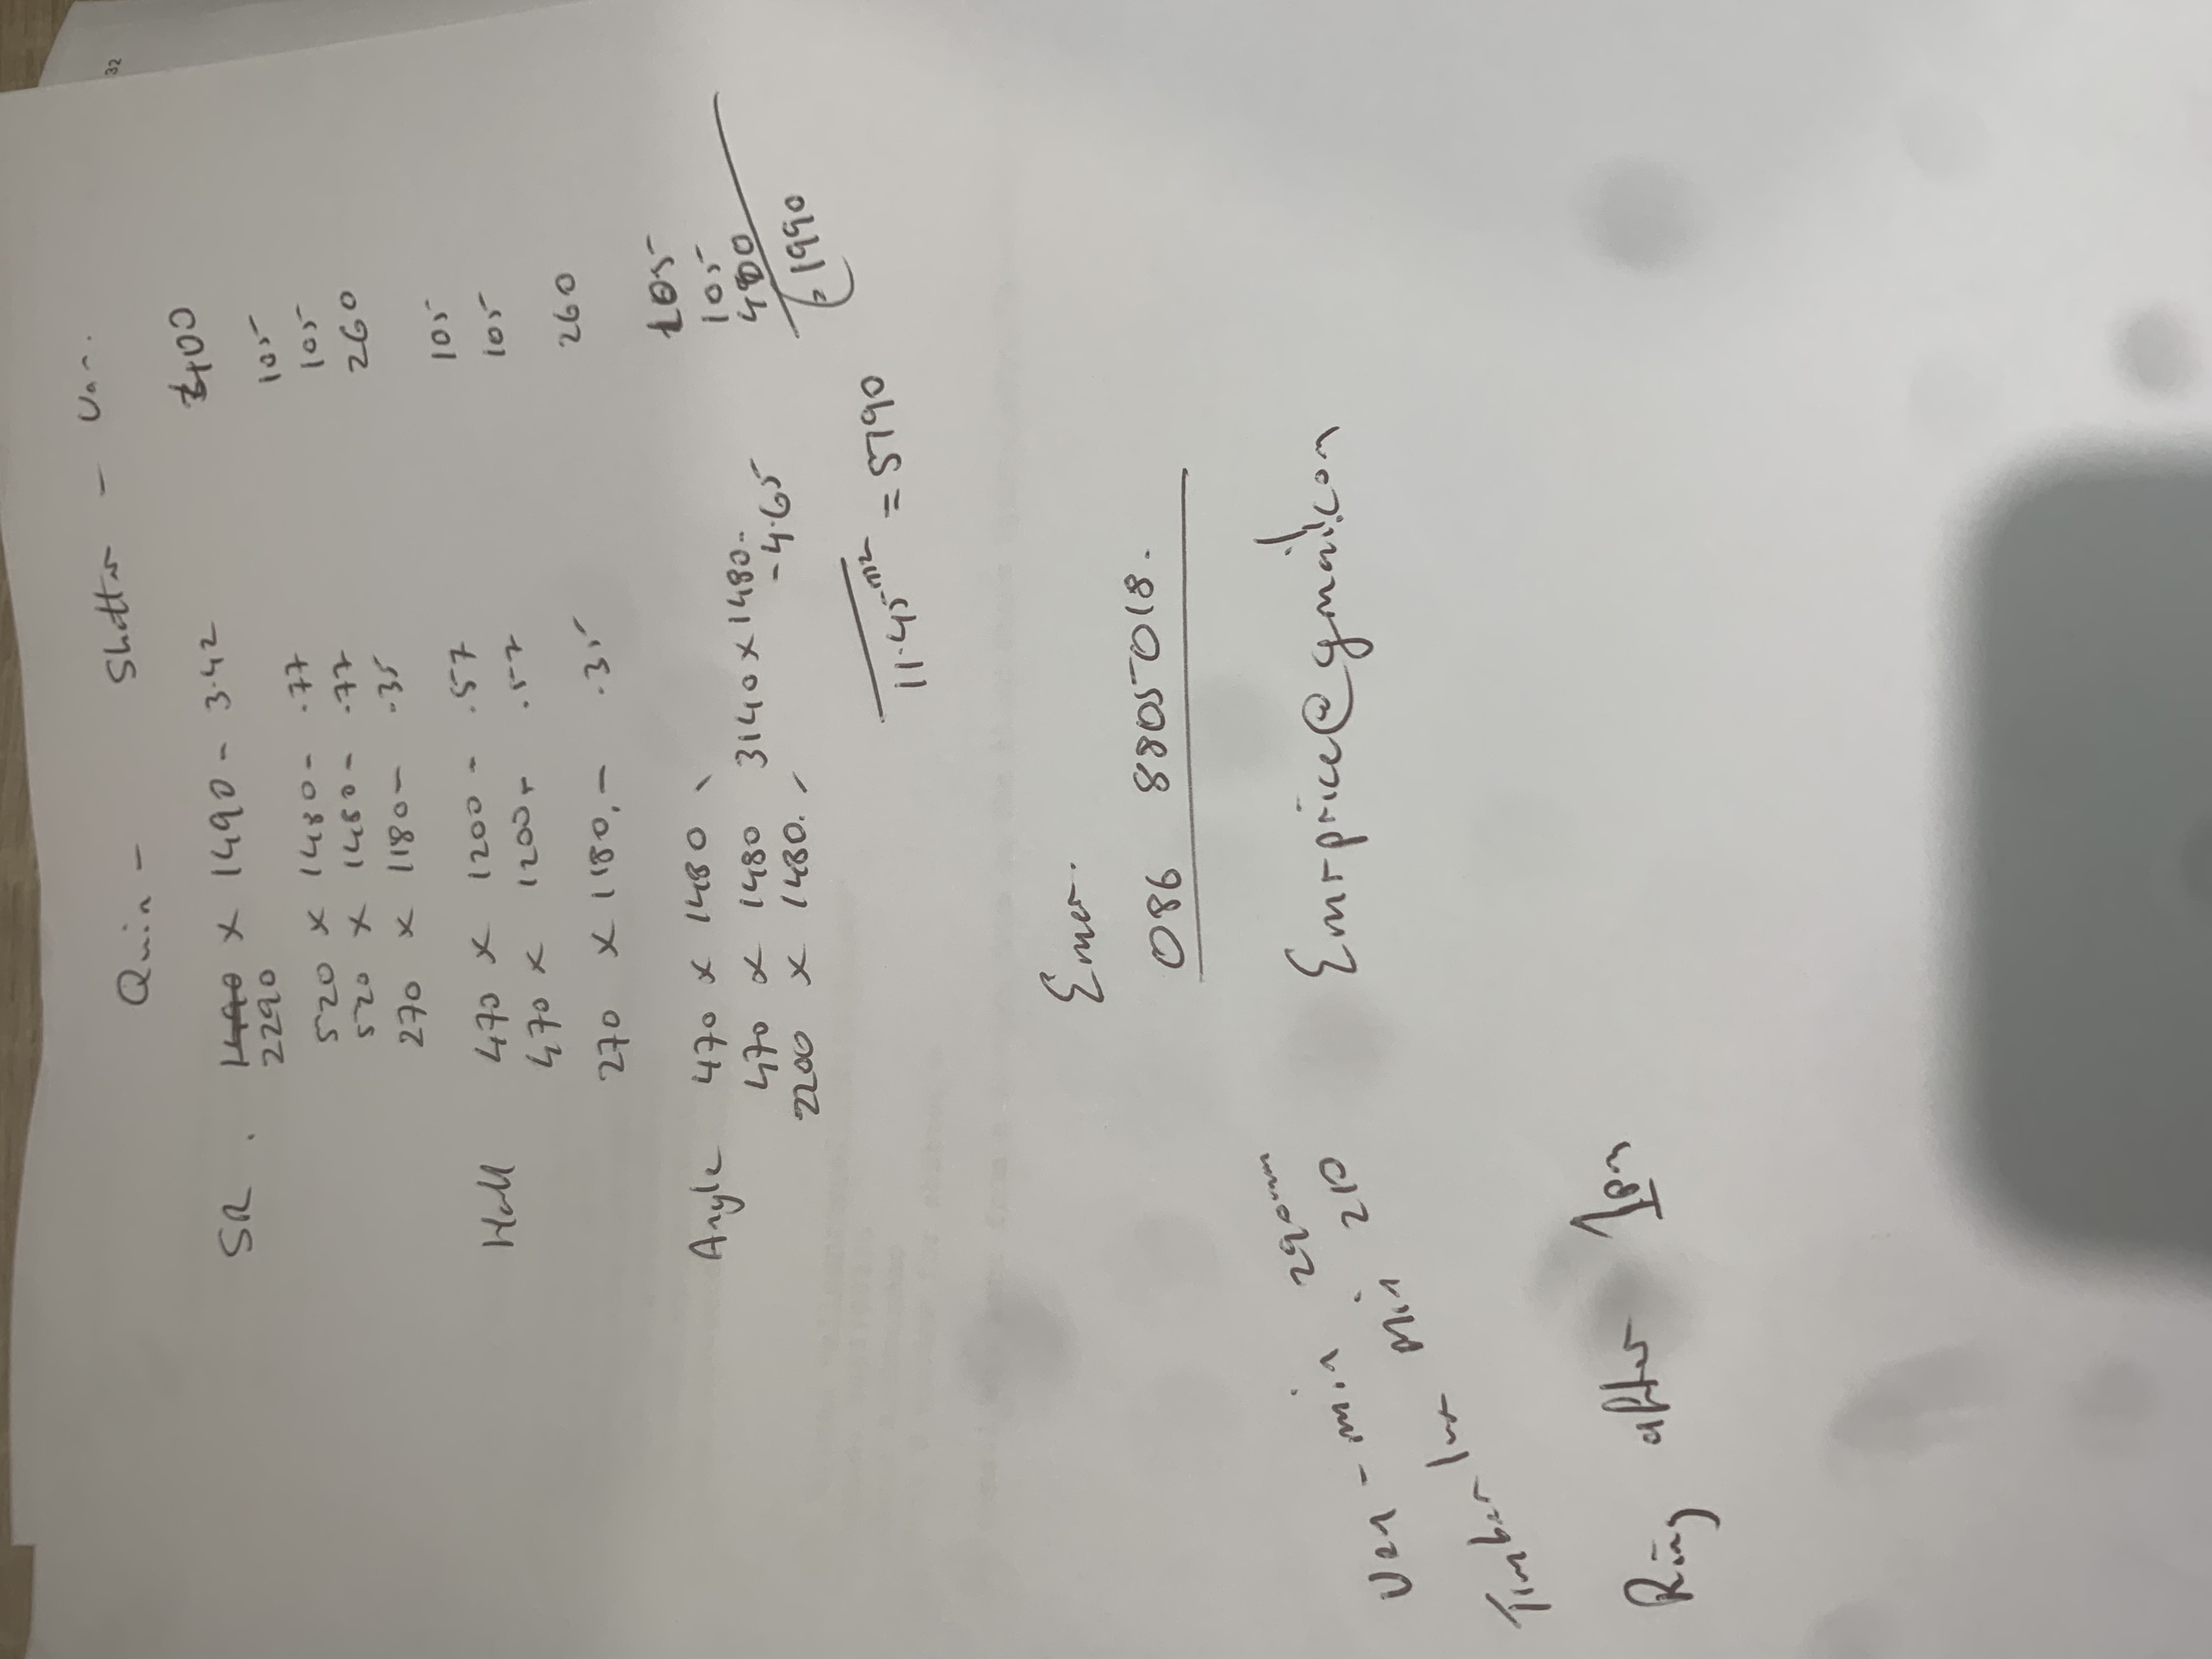 32
Quin - Shutter - Ven.
SR. 1490 x 1490 - 3.42 400
2290
520 x 1480 - .77 105
520 x 1480 - .77 105
270 x 1180 - .35 260
Hall 470 x 1200 - .57 105
470 x 1200 - .57 105
270 x 1180. - .35 260
Angle 470 x 1480 105
470 x 1480 3140 x 1480.. 105
2200 x 1480. - 4.65 400
= 1990
11.45m2 = 5790
Emer.
086 8805018.
Emrprice@gmail.com
Ven - min 290mm
Timber min 210
Ring after 1pm